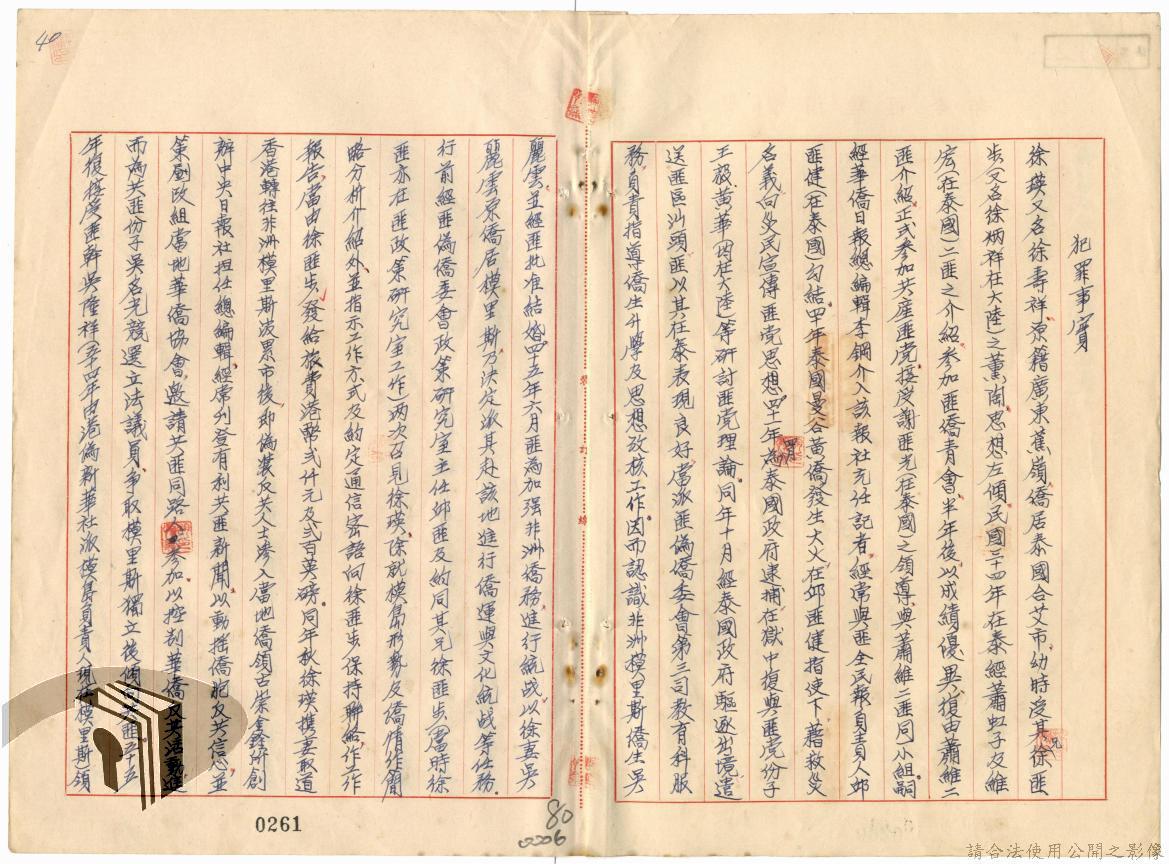 犯罪事實
徐瑛又名徐壽祥原籍廣東蕉嶺僑居泰國合艾市幼時受其兄徐匪
步(又名徐炳祥在大陸)之薰陶思想左傾民國三十四年在泰經蕭虹子及維
宏(在泰國)二匪之介紹參加匪僑青會半年後以成績優異復由蕭維二
匪介紹正式參加共產匪党接受謝匪光(在泰國)之領導與蕭維二匪同小組嗣
經華僑日報總編輯李鋼介入該報社充任記者經常與匪全民報負責人邱
匪健(在泰國)勾結甲年泰國曼谷黃僑發生大火在邱匪健指使下藉救災
名義向災民宣傳匪党思想四十一年為泰國政府逮捕在獄中復與匪党份子
王毅黃華(囚在大陸)等研討匪党理論同年十月經泰國政府驅逐出境遣
送匪區汕頭匪以其在泰表現良好當派匪偽僑委會第三司教育科服
務負責指導僑生升學及思想攷核工作因而認識非洲模里斯僑生吳
麗雲並經匪批准結婚四十五年六月匪為加强非洲僑務進行統战以徐妻吳
麗雲原僑居模里斯乃決定派其赴該地進行僑運與文化統战等任務
行前經匪偽僑委會政策研究室主任邱匪及納同其兄徐匪步(當時徐
匪亦在匪政策研究室工作)两次召見徐瑛除就模島形勢及僑情作簡
略分析介紹外並指示工作方式及約定通信密語向徐匪步保持聯絡作工作
報告當由徐匪步發給旅費港幣弍仟元及弍百英磅同年秋徐瑛携妻取道
香港轉往非洲模里斯波累市後即偽裝反共人士滲入當地僑領古崇鑫所創
辦中央日報社担任總編輯經常刋登有利共匪新聞以動搖僑胞反共信心並
策劃改組當地華僑協會邀請共匪同路人參加以控制華僑反共活動進
而為共匪份子吳名光競選立法議員爭取模里斯獨立後傾向共匪五十五
年復接受匪幹吳隆祥(五十四年由港偽新華社派模島負責人現在模里斯領
40
0261
80
0006
請合法使用公開之影像